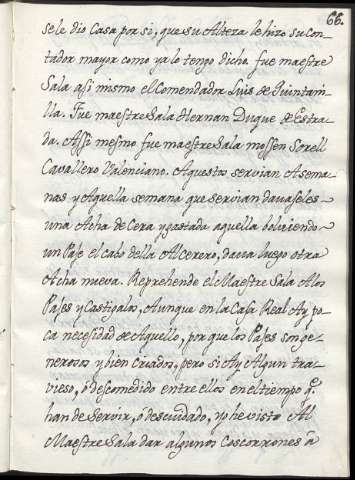 66.
se le dio Casa por si, que su Alteza le hizo su Con-
tador mayor como ya lo tengo dicho. fue maestre
Sala asi mismo el Comendador Luis de Quintani-
lla. Fue maestre Sala Hernan Duque de Estra-
da. Assi mesmo fue maestre Sala mossen Sorell
Cavallero Valenciano. Aquestos servian A sema-
nas y Aquella semana que servian davaseles
una Acha de Cera y gastada aquella bolviendo
un Paje el cabo della Al Cerero, dava luego otra
Acha nueva. Reprehende el Maestre Sala A los
Pajes y Castigalos, Aunque en la Casa Real Ay po-
ca necesidad de Aquello, por que los Pajes son ge-
nerosos y bien Criados, pero si Ay Algun tra-
vieso, ò descomedido entre ellos en el tiempo q̃
han de Servir, ò descuidado, yo he visto Al
Maestre Sala dar algunos Coscorrones à